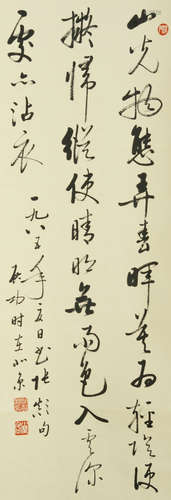 山光物態弄春暉莫为輕陰便
擬歸縱使晴明無雨色入雲深
處亦沾衣
一九八五年夏日书張顛句
啓功时在北京